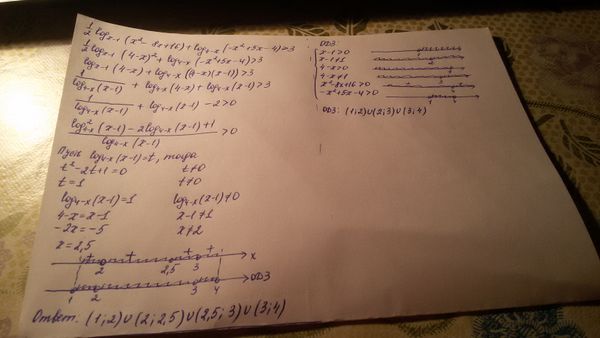 1/2 log_{x-1} (x² - 8x + 16) + log_{4-x} (-x² + 5x - 4) > 3
1/2 log_{x-1} (4-x)² + log_{4-x} (-x² + 5x - 4) > 3
log_{x-1} (4-x) + log_{4-x} (4-x)(x-1)) > 3
1/log_{4-x} (x-1) + log_{4-x} (4-x) + log_{4-x} (x-1) > 3
1/log_{4-x} (x-1) + log_{4-x} (x-1) - 2 > 0
(log²_{4-x} (x-1) - 2log_{4-x} (x-1) + 1)/log_{4-x} (x-1) > 0
Пусть log_{4-x} (x-1) = t, тогда
t² - 2t + 1 = 0 t ≠ 0
t = 1 t ≠ 0
log_{4-x} (x-1) = 1 log_{4-x} (x-1) ≠ 0
4-x = x-1 x-1 ≠ 1
-2x = -5 x ≠ 2
x = 2,5
+ + + + x
2 2,5 3
ОДЗ
1 2 3 4
Ответ. (1;2)∪(2;2,5)∪(2,5;3)∪(3;4)
ОДЗ:
x-1>0
x-1≠1
4-x>0
4-x≠1
x²-8x+16>0
-x²+5x-4>0
ОДЗ: (1;2)∪(2;3)∪(3;4)